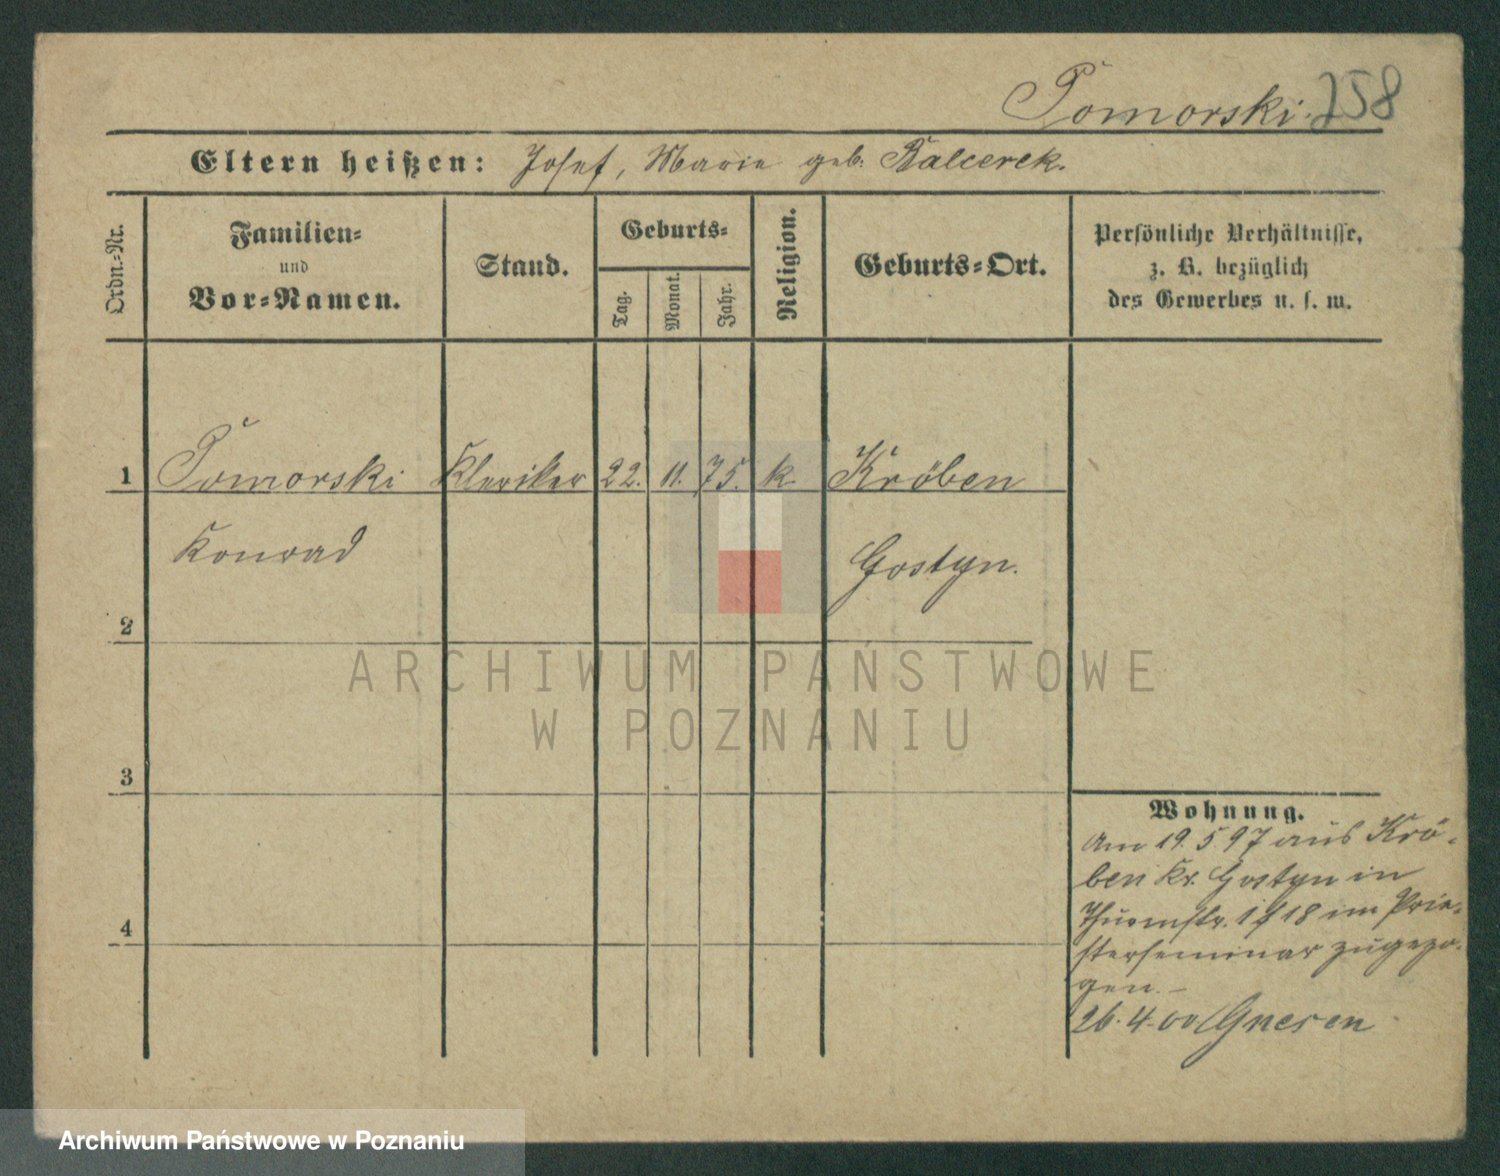 Pomorski. 258
Eltern heißen: Josef, Marie geb. Balcerek.
Ordn.-Nr.
Familien-
und
Vor-Namen.
Stand.
Geburts-
Tag.
Monat.
Jahr.
Religion.
Geburts-Ort.
Persönliche Verhältnisse,
z. B. bezüglich
des Gewerbes u. s. w.
1 Pomorski Kleriker 22. 11. 75. k. Kröben
Konrad Gostyn.
2
ARCHIWUM PAŃSTWOWE
W POZNANIU
3
Wohnung.
Am 19. 5 97 aus Krö-
ben Kr. Gostyn in
Thurmstr. 1 f 18 im Prie-
sterseminar zugezo-
gen. -
26. 4. 00 Gnesen
4
Archiwum Państwowe w Poznaniu